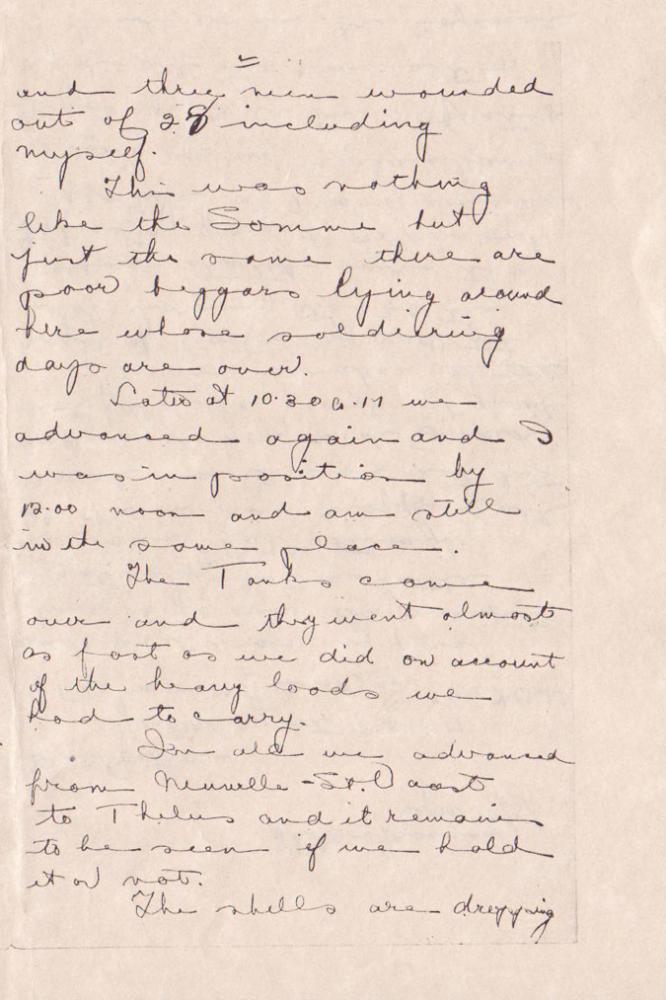 and three men wounded
out of 28 including
myself.
This was nothing
like the Somme but
just the same there are
poor beggars lying around
here whose soldiering
days are over.
Later at 10.30 a.m we
advanced again and I
was in position by
12.00 noon and am still
in the same place.
The Tanks came
over and they went almost
as fast as we did on account
of the heavy loads we
had to carry.
In all we advanced
from Neuville-St. Vaast
to Thelus and it remains
to be seen if we hold
it or not.
The shells are dropping